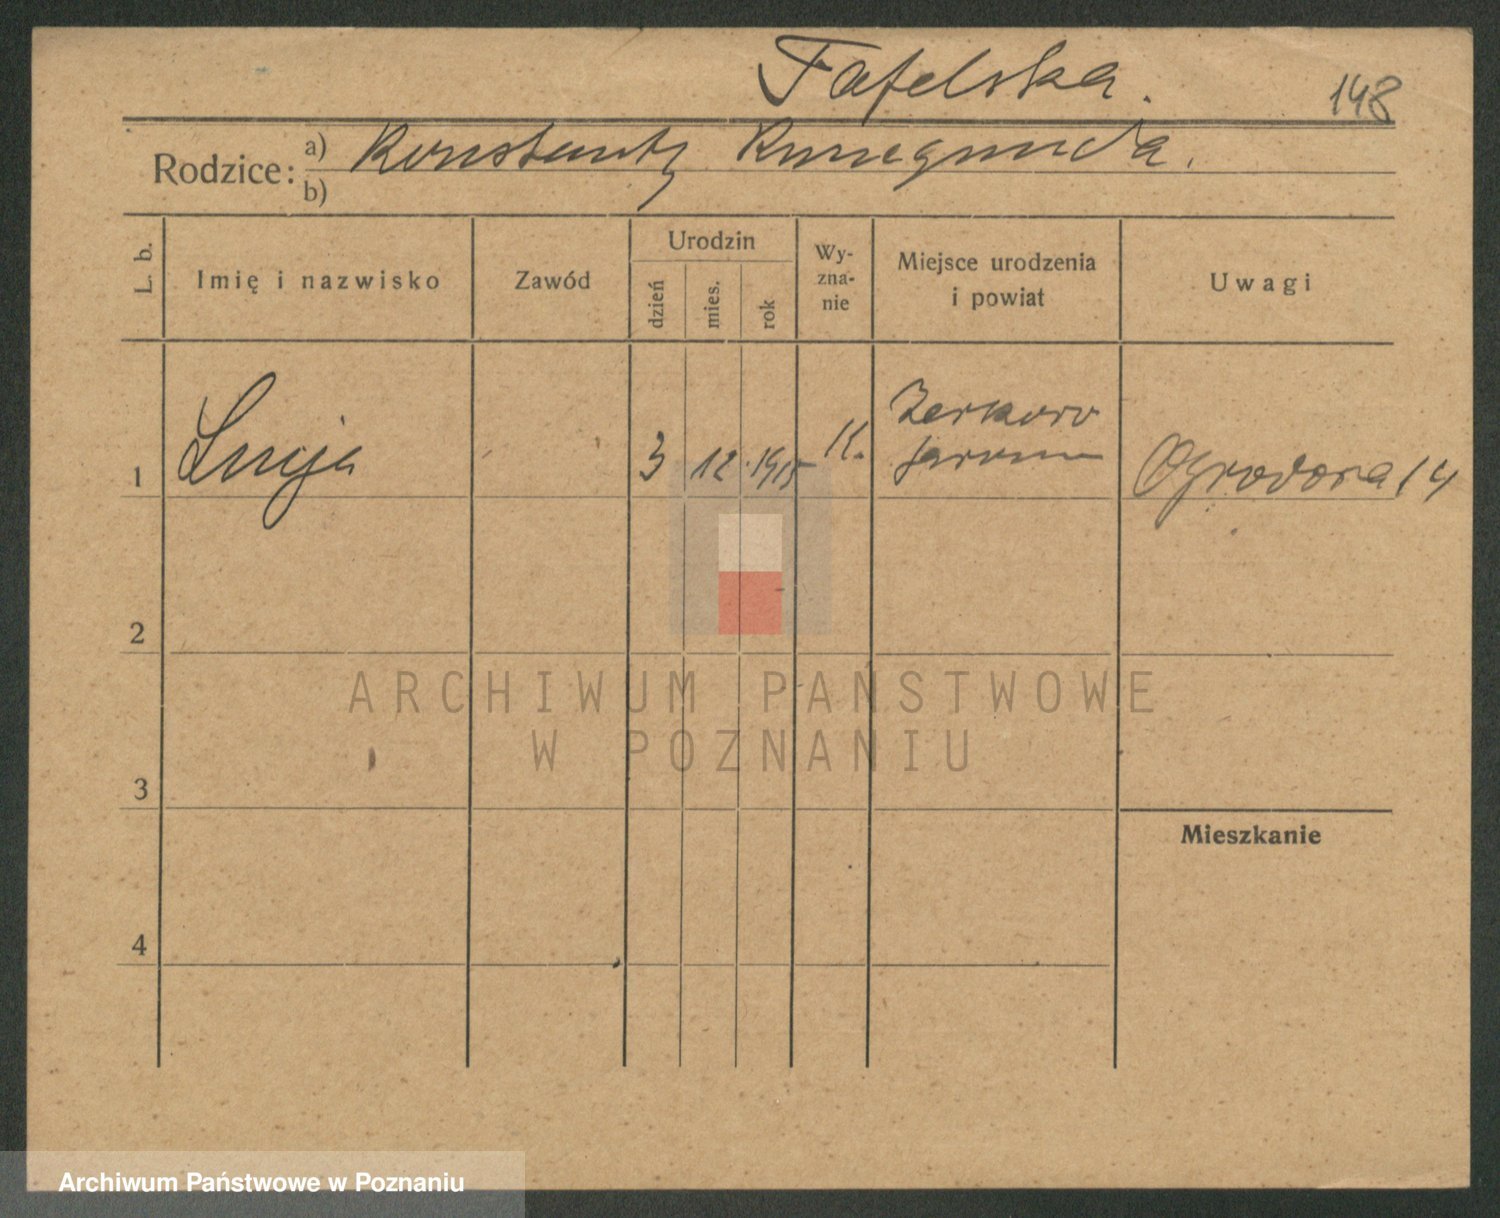 Fafelska.
148
Rodzice: a) Konstanty Kunegunda.
b)
L. b.
Imię i nazwisko
Zawód
Urodzin
dzień
mies.
rok
Wy-
zna-
nie
Miejsce urodzenia
i powiat
Uwagi
1
Lucja
3
12
1915
K.
Żerkowo
Ogrodowa 14
2
ARCHIWUM PAŃSTWOWE
W POZNANIU
3
Mieszkanie
4
Archiwum Państwowe w Poznaniu